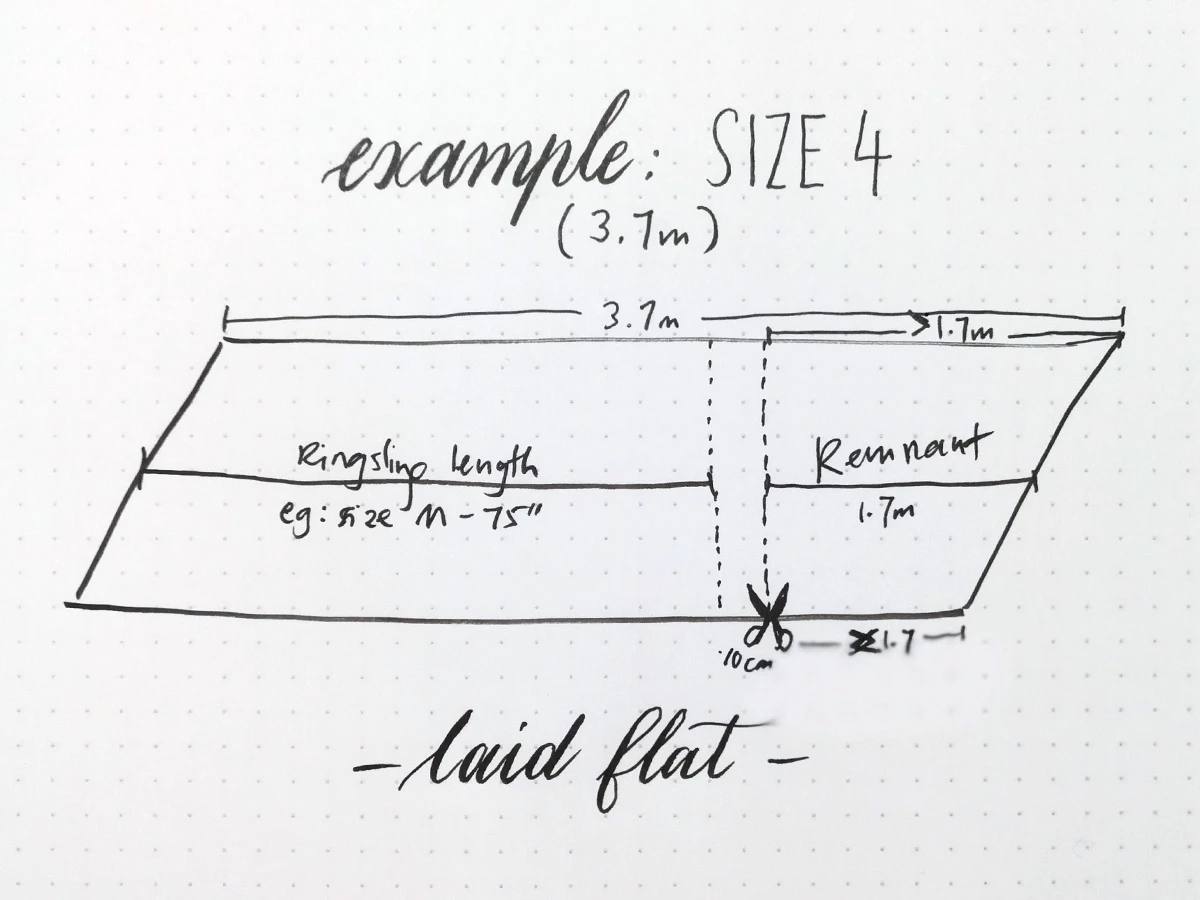 example: SIZE 4
(3.7m)
3.7m
>1.7m
Ringsling length
eg: size M - 75"
Remnant
1.7m
10cm
1.7
- laid flat -